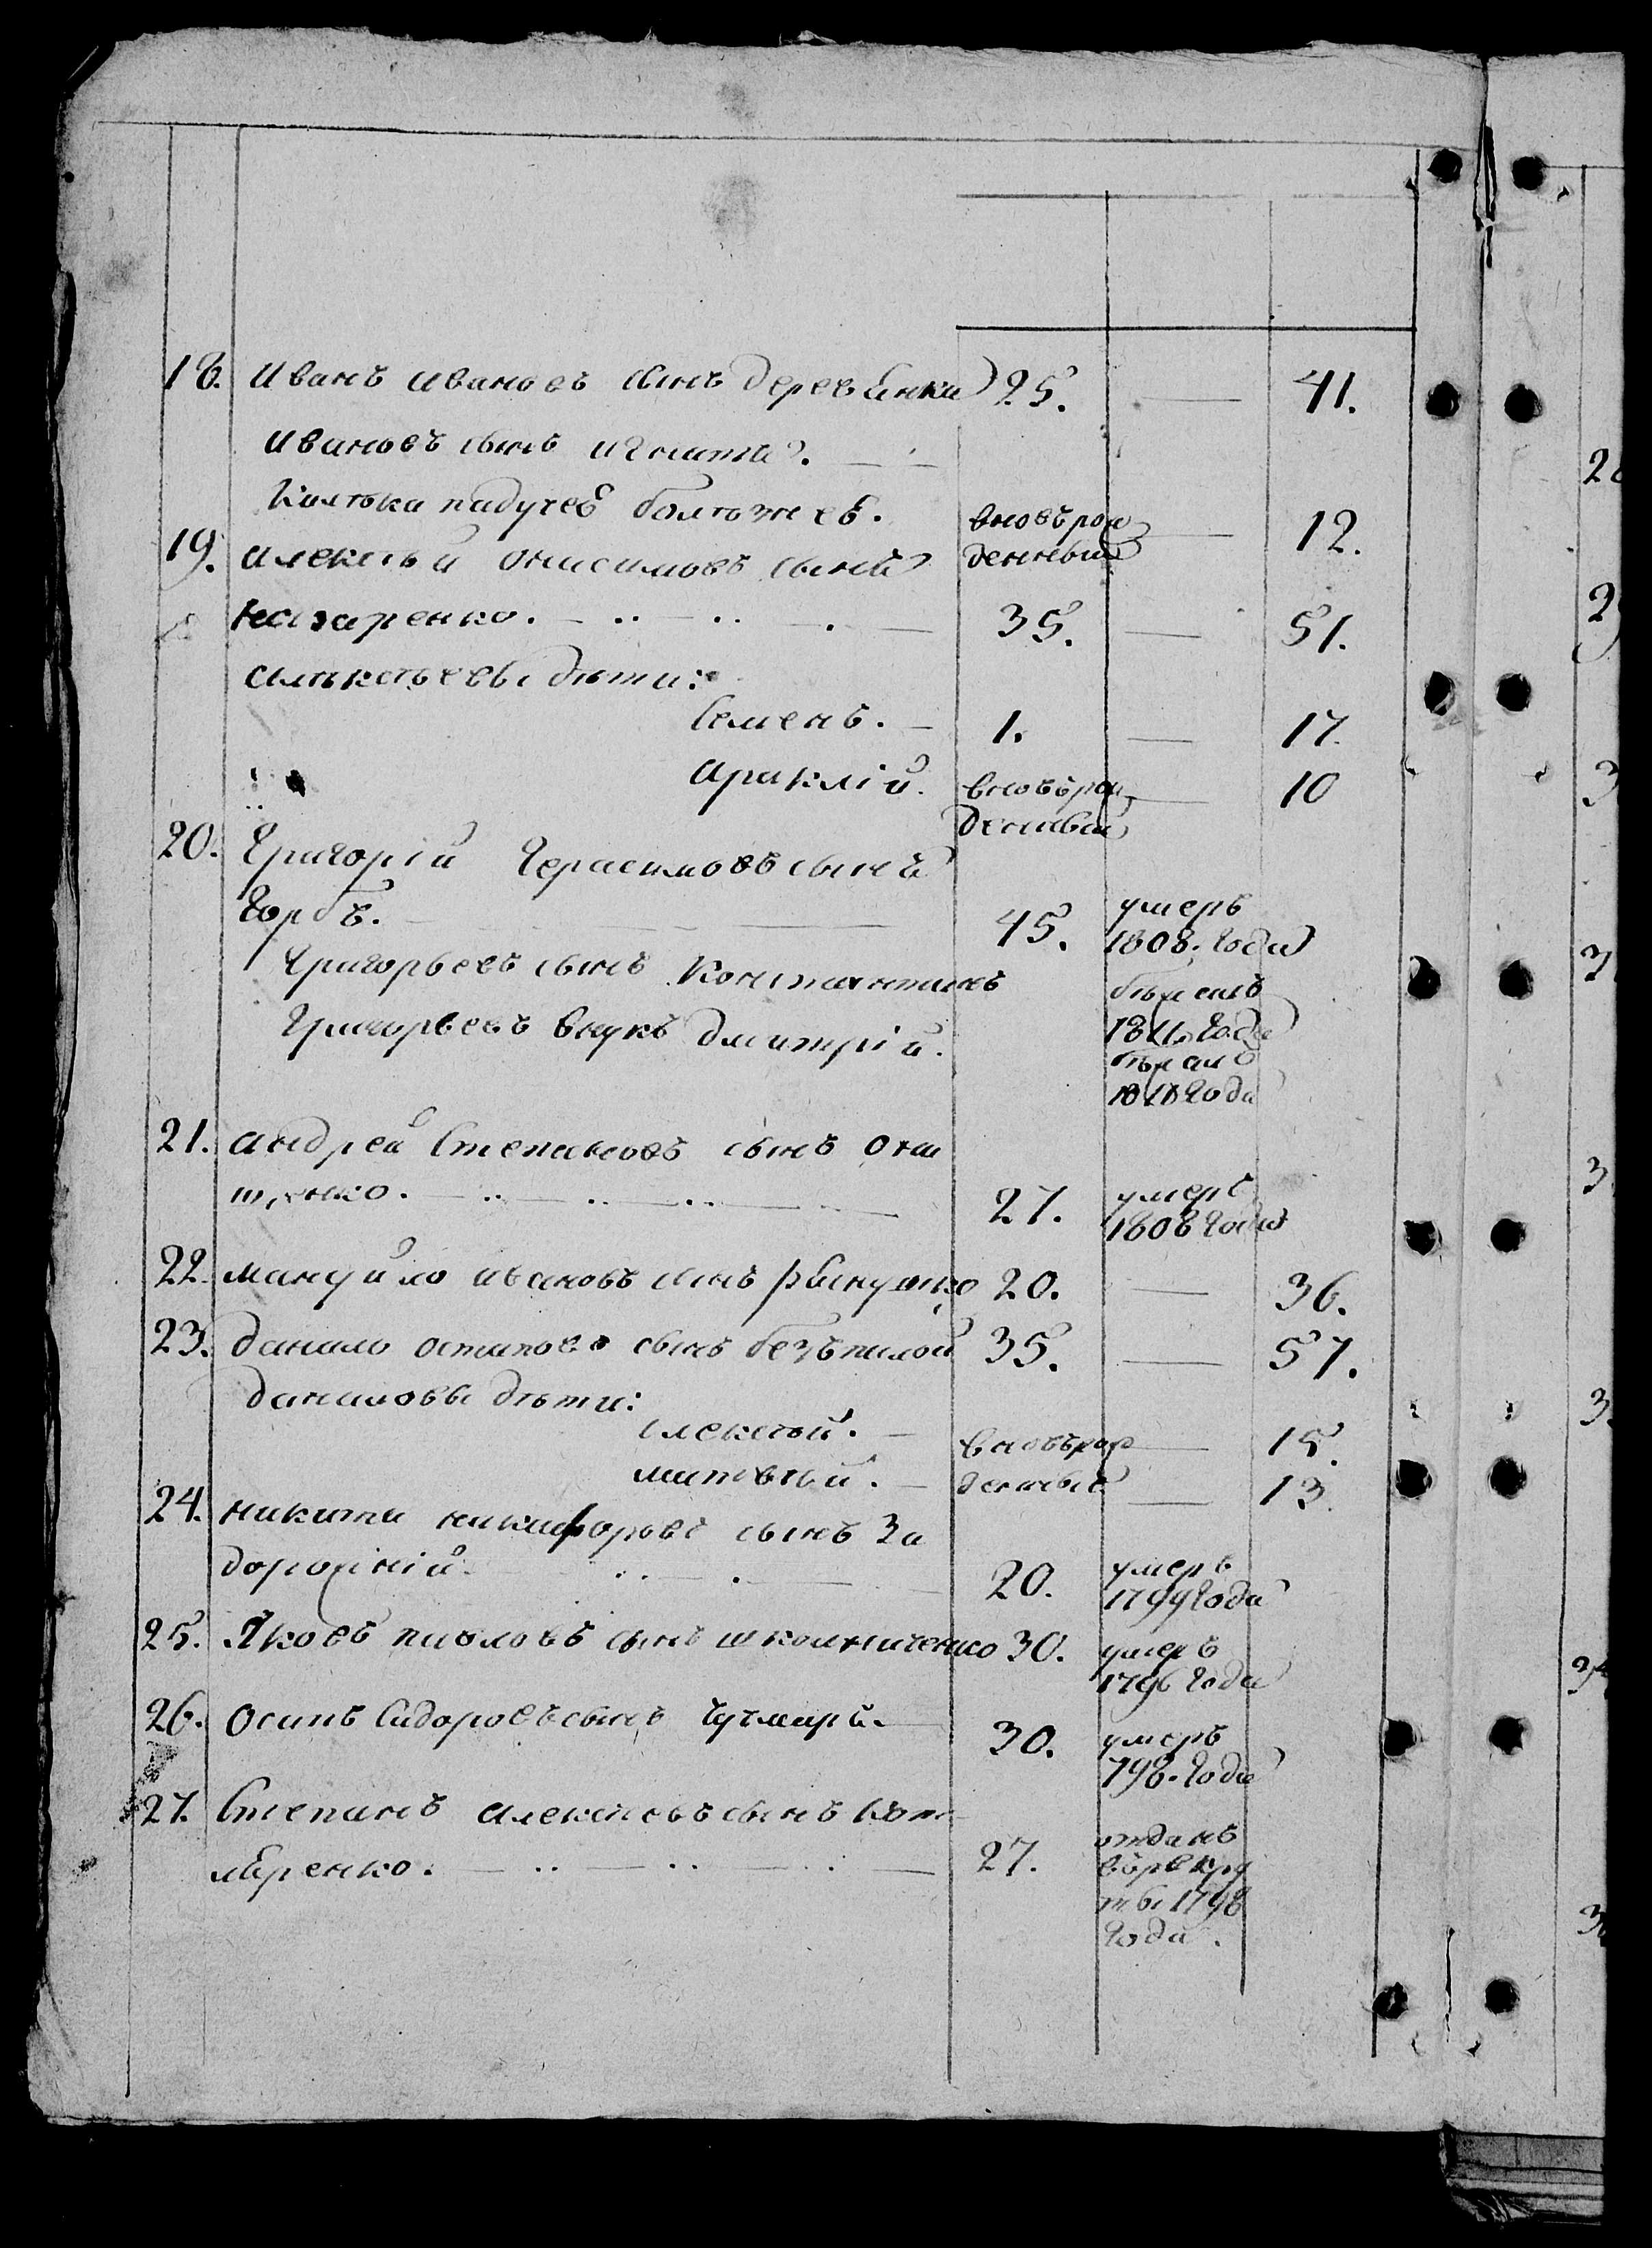 18. Иванъ Ивановъ сынъ деревянка 25. — 41.
Ивановъ сынъ Игнатъ. —
падучей болѣзней. вновьрож 12.
19. Алексѣй Онисимовъ сынъ денный
Назаренко. — 35. — 51.
Алексѣевы дѣти:
Семенъ. — 1. — 17.
Араклій. вновьрож — 10
денный
20. Григорій Герасимовъ сынъ
Горбъ. 45. умеръ
1808. года
Григорьевъ сынъ Константинъ
Григорьевъ внукъ Дмитрій. 1811. года
года
21. Андрей Степановъ сынъ Они
щенко. — 27. умеръ
1808 года
22. Мануйло Ивановъ сынъ 20. — 36.
23. Данило Остаповъ сынъ безъпалой 35. — 57.
Даниловы дѣти:
Алексѣй. — вновьрож — 15.
Матвѣй. — денные — 13.
24. Никита Никифоровъ сынъ За
дорожній. — 20. умеръ
1799 года
25. Яковъ Павловъ сынъ школниченко 30. умеръ
1796 года
26. Осипъ Сидоровъ сынъ Чучмарь. 30. умеръ
798. года
27. Степанъ Алексѣевъ сынъ Кот
ляренко. — 27. отданъ
в рекру
ты 1798
года.